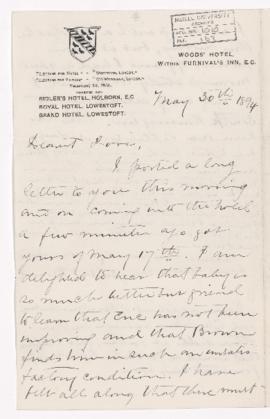 McGILL UNIVERSITY
ARCHIVES
ACC. NO.
REF.
WOODS' HOTEL,
WITHIN FURNIVAL'S INN, E.C.
REDLER'S HOTEL, HOLBORN, E.C.
ROYAL HOTEL LOWESTOFT.
GRAND HOTEL, LOWESTOFT.
May 30th 1894
Dearest Dora,
I posted a long
letter to you this morning
and on coming into the hotel
a few minutes ago got
yours of May 17th. I am
delighted to hear that baby is
so much better but grieved
to learn that Eric has not been
improving and that Brown
finds him in such an unsatis-
factory condition. I have
felt all along that there must